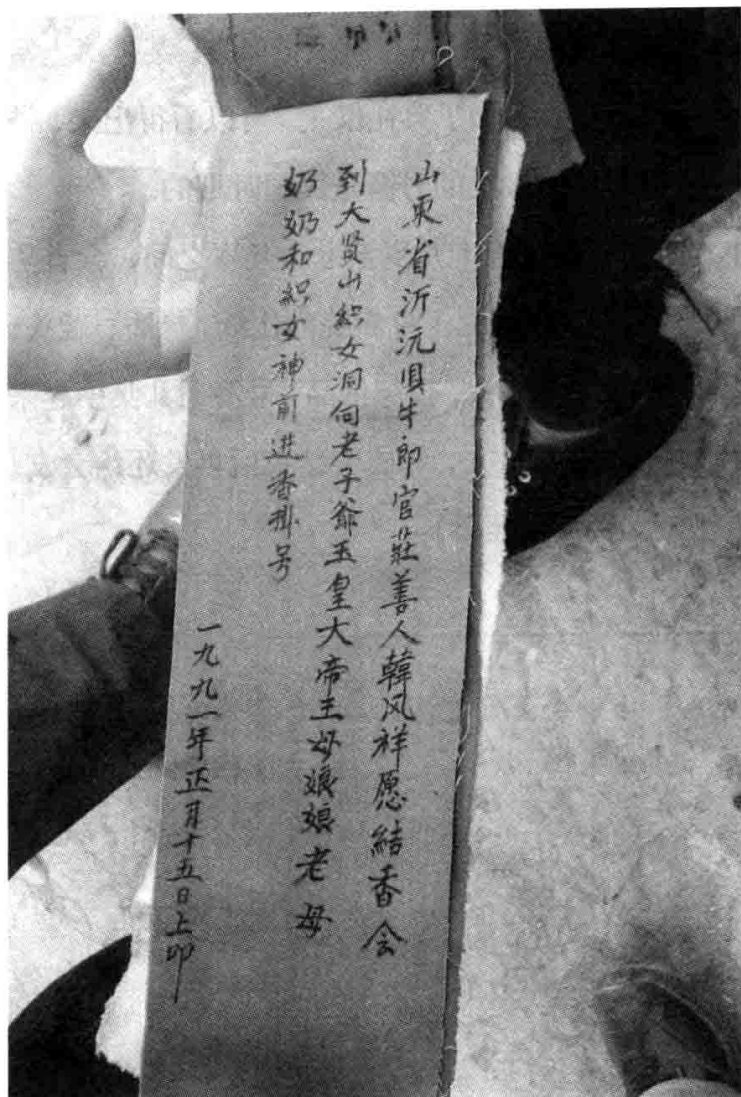 山东省沂沅县牛郎官莊善人韓风祥愿結香会
到大贤山織女洞向老子爺玉皇大帝王母娘娘老母
奶奶和織女神前进香掛号
一九九一年正月十五日上印